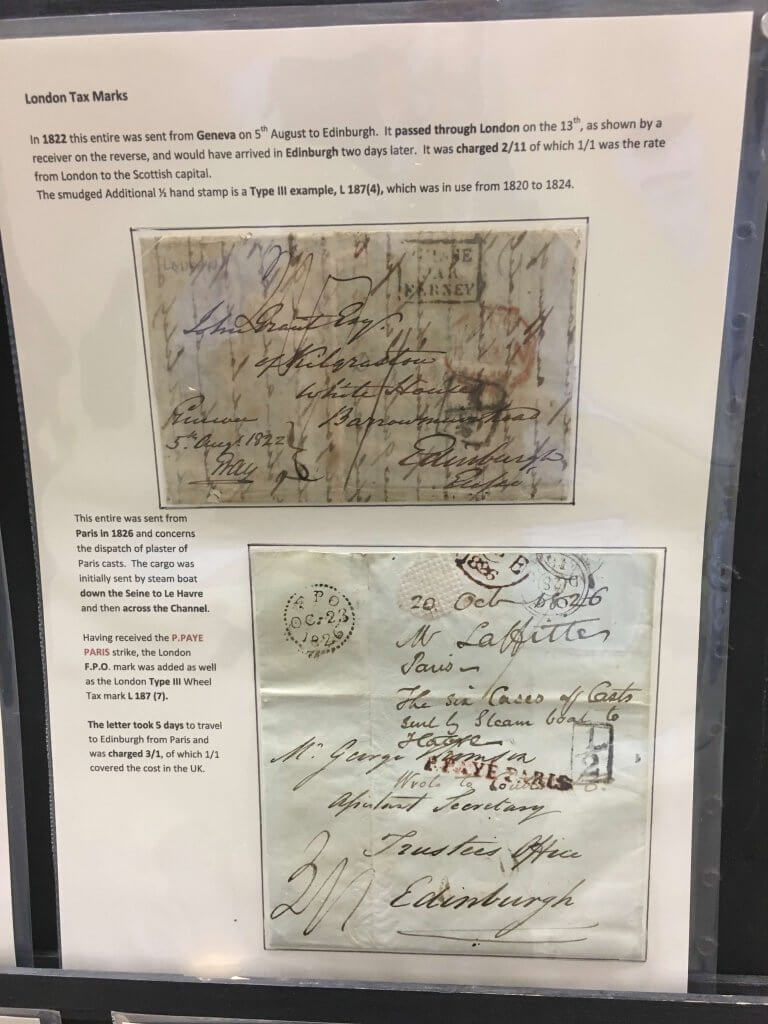 London Tax Marks
In 1822 this entire was sent from Geneva on 5th August to Edinburgh. It passed through London on the 13th, as shown by a
receiver on the reverse, and would have arrived in Edinburgh two days later. It was charged 2/11 of which 1/1 was the rate
from London to the Scottish capital.
The smudged Additional ½ hand stamp is a Type III example, L 187(4), which was in use from 1820 to 1824.
PAR
FERNEY
John Grant Esq.
of Kilgraston
White House
Barrowmuirhead
Edinburgh
5th Augt. 1822
This entire was sent from
Paris in 1826 and concerns
the dispatch of plaster of
Paris casts. The cargo was
initially sent by steam boat
down the Seine to Le Havre
and then across the Channel.
Having received the P.PAYE
PARIS strike, the London
F.P.O. mark was added as well
as the London Type III Wheel
Tax mark L 187 (7).
The letter took 5 days to travel
to Edinburgh from Paris and
was charged 3/1, of which 1/1
covered the cost in the UK.
F P O
OC: 23
1826
20 Oct 1826
Mr Laffitte
Paris
The six Cases of Casts
sent by Steam boat to
Havre
Mr. George
P.PAYE PARIS
Wrote to
Assistant Secretary
Trustees Office
Edinburgh
3/1